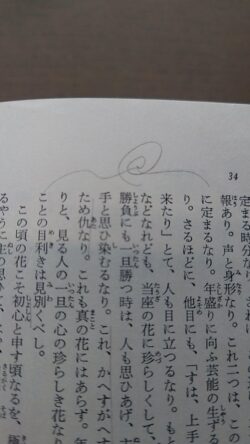 34
定まる時分な
報あり。声と身形なり。これ二つは、こ
に定まるなり。年盛りに向ふ芸能の生ずる
り。さるほどに、他目にも、「すは、上手
来たり」とて、人も目に立つるなり。も
などなれども、当座の花に珍らしくして、
勝負にも一旦勝つ時は、人も思ひあげ、
手と思ひ染むるなり。これ、かへすがへす
ため仇なり。これも真の花にはあらず。年
りと、見る人の一旦の心の珍らしき花なり
ことの目利きは見別くべし。
この頃の花こそ初心と申す頃なるを、極
るやうに主の思ひて、はや